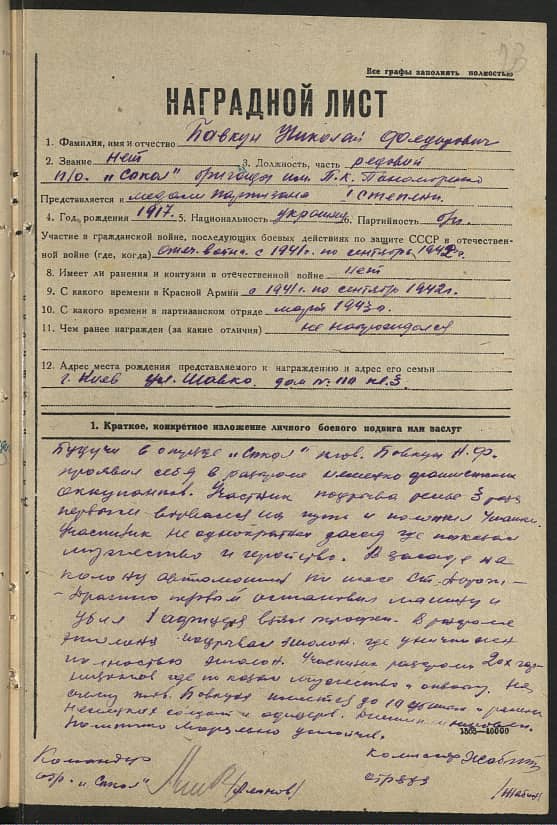 23
Все графы заполнять полностью
НАГРАДНОЙ ЛИСТ
1. Фамилия, имя и отчество Бовкун Николай Федорович
2. Звание нет 3. Должность, часть редовой
п/о. "Сокол" бригады им. П.К. Пономоренко
Представляется к медали партизана I степени.
4. Год рождения 1917. 5. Национальность украинец 6. Партийность б/п.
Участие в гражданской войне, последующих боевых действиях по защите СССР в отечествен-
ной войне (где, когда) отеч. война с 1941г. по сентябрь 1942г.
8. Имеет ли ранения и контузии в отечественной войне нет
9. С какого времени в Красной Армии с 1941г. по сентябрь 1942г.
10. С какого времени в партизанском отряде март 1943г.
11. Чем ранее награжден (за какие отличия) не награждался
12. Адрес места рождения представляемого к награждению и адрес его семьи
г. Киев ул. дом № кв. 3
1. Краткое, конкретное изложение личного боевого подвига или заслуг
Будучи в отряде "Сокол" тов. Бовкун Н.Ф.
проявил себя в разгроме немецко фашистских
оккупантов. Участник подрыва 3 раза
первым ворвался на пути и
Участник неоднократных засад где показал
мужество и геройство. В засаде на
колону автомашин по шосе Ст-Дороги-
первым остановил машину и
убил 1 офицера взял трофеи. В разгроме
эшелона подрывал эшелон где уничтожен
полностью эшелон. Участник разгрома 2ох гар-
низонов где показал мужество и отвагу. На
счету тов. Бовкуна имеется до 10 убитых и раненых
немецких солдат и офицеров.
1565—10000
Командир комиссар
отр. "Сокол" отряда